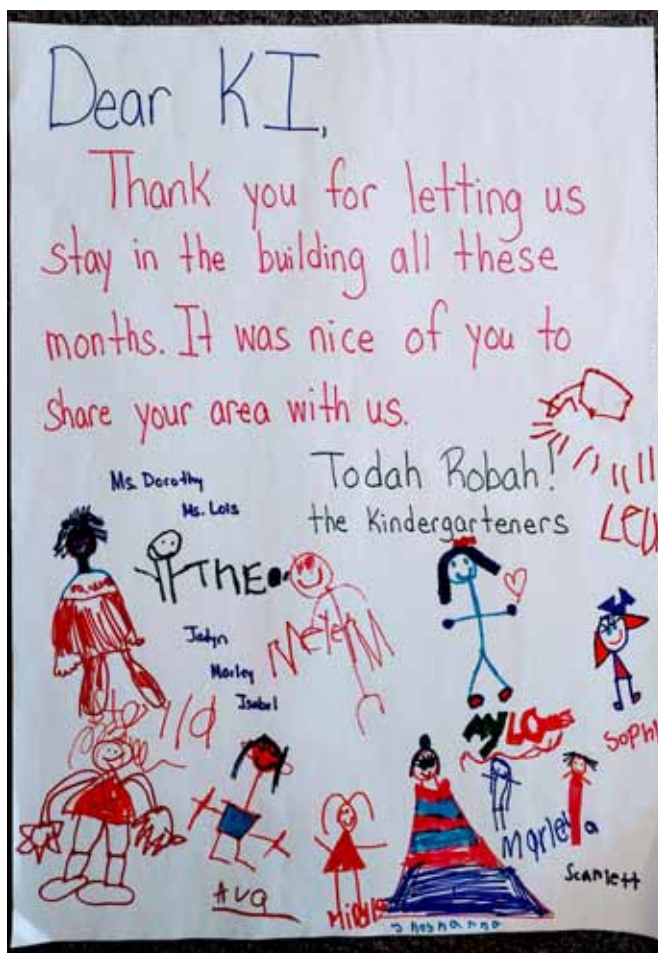 Dear KI,
Thank you for letting us
stay in the building all these
months. It was nice of you to
share your area with us.
Todah Robah!
the Kindergarteners
Ms. Dorothy
Ms. Lois
THEO
Meyer M
Jadyn
Marley
Isabel
Sophi
Marley
Scarlett
Ava
Shoshanna